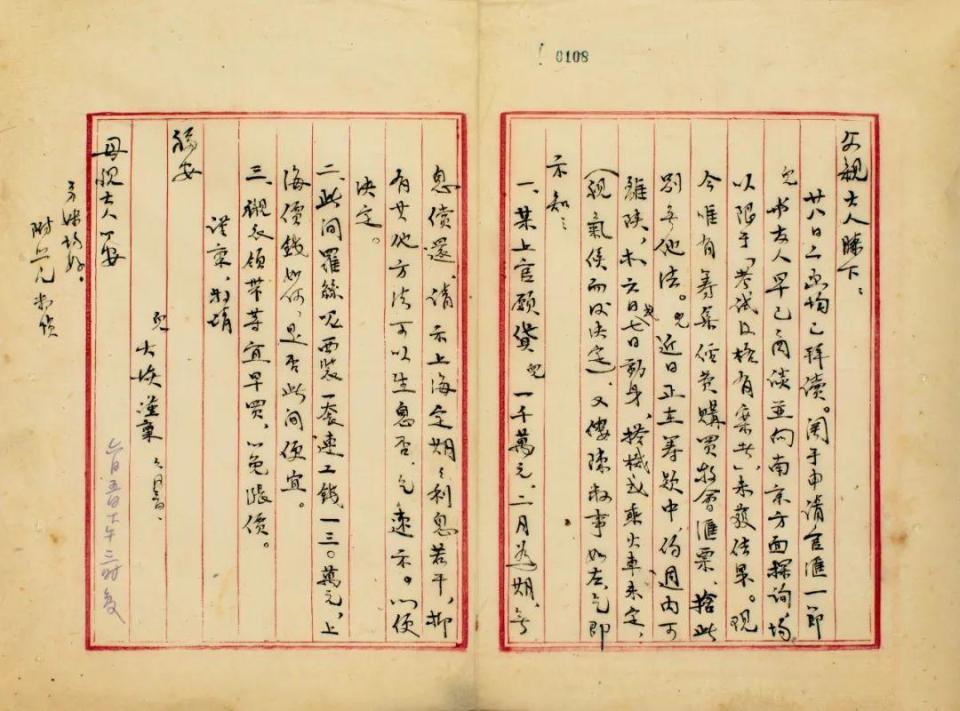 0108
父親大人膝下：
廿八日二函均已拜讀。關于申請官匯一節
兒書友人早已商談並向南京方面探詢，均
以限于「考試及格有案者」，未獲結果。現
今唯有籌集經費購買教會匯票，捨此
別無他法。兒近日正在籌款中，約週內可
離陝，大六日或七日動身，搭機或乘火車未定，
（視氣候而後決定），又僂陳數事如左，乞即
示知：
一、某上官願貸兒一千萬元，二月為期，無
息償還，請示上海定期之利息若干，抑
有其他方法可以生息否，乞速示。以便
決定。
二、此間羅絲呢西裝一套連工錢一三〇萬元，上
海價錢如何，是否此間便宜。
三、襯衣領帶等宜早買，以免漲價。
謹稟，敬請
福安
兒 大 謹稟
母親大人以安
弟妹均好。
六月五日下午三時